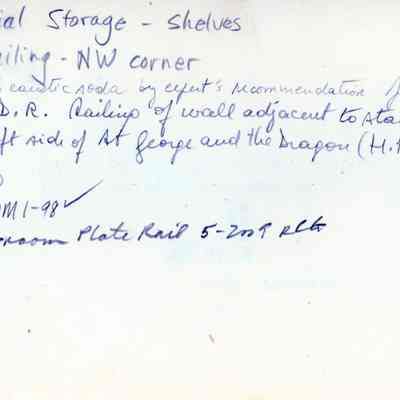 ial Storage - Shelves
eiling - NW corner
caustic soda by expert's recommendation
D.R. Railing of wall adjacent to
ft side of St George and the Dragon (H.
M 1-98 ✓
room Plate Rail 5-2009